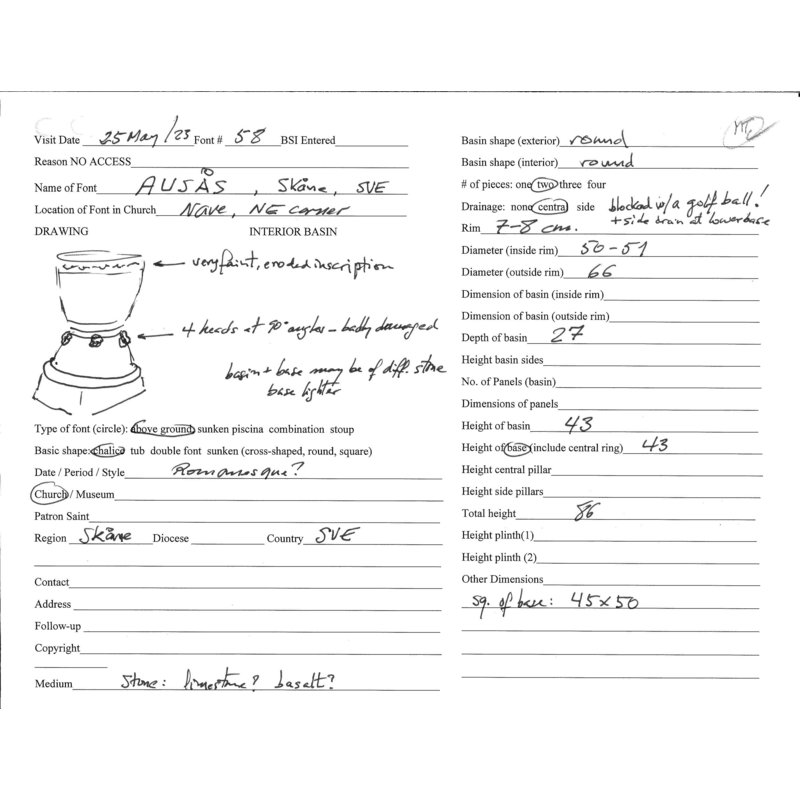 Visit Date 25 May/23 Font # 58 BSI Entered
Reason NO ACCESS
Name of Font AUSÅS, Skåne, SVE
Location of Font in Church Nave, NE corner
DRAWING INTERIOR BASIN
very faint, eroded inscription
4 heads at 90° angles – badly damaged
basin + base may be of diff. stone
base lighter
Type of font (circle): above ground sunken piscina combination stoup
Basic shape: chalice tub double font sunken (cross-shaped, round, square)
Date / Period / Style Romanesque?
Church / Museum
Patron Saint
Region Skåne Diocese Country SVE
Contact
Address
Follow-up
Copyright
Medium Stone: limestone? basalt?
Basin shape (exterior) round
Basin shape (interior) round
# of pieces: one two three four
Drainage: none central side blocked w/a golf ball!
+ side drain at lower base
Rim 7-8 cm.
Diameter (inside rim) 50-51
Diameter (outside rim) 66
Dimension of basin (inside rim)
Dimension of basin (outside rim)
Depth of basin 27
Height basin sides
No. of Panels (basin)
Dimensions of panels
Height of basin 43
Height of base (include central ring) 43
Height central pillar
Height side pillars
Total height 86
Height plinth(1)
Height plinth (2)
Other Dimensions
sq. of base: 45x50